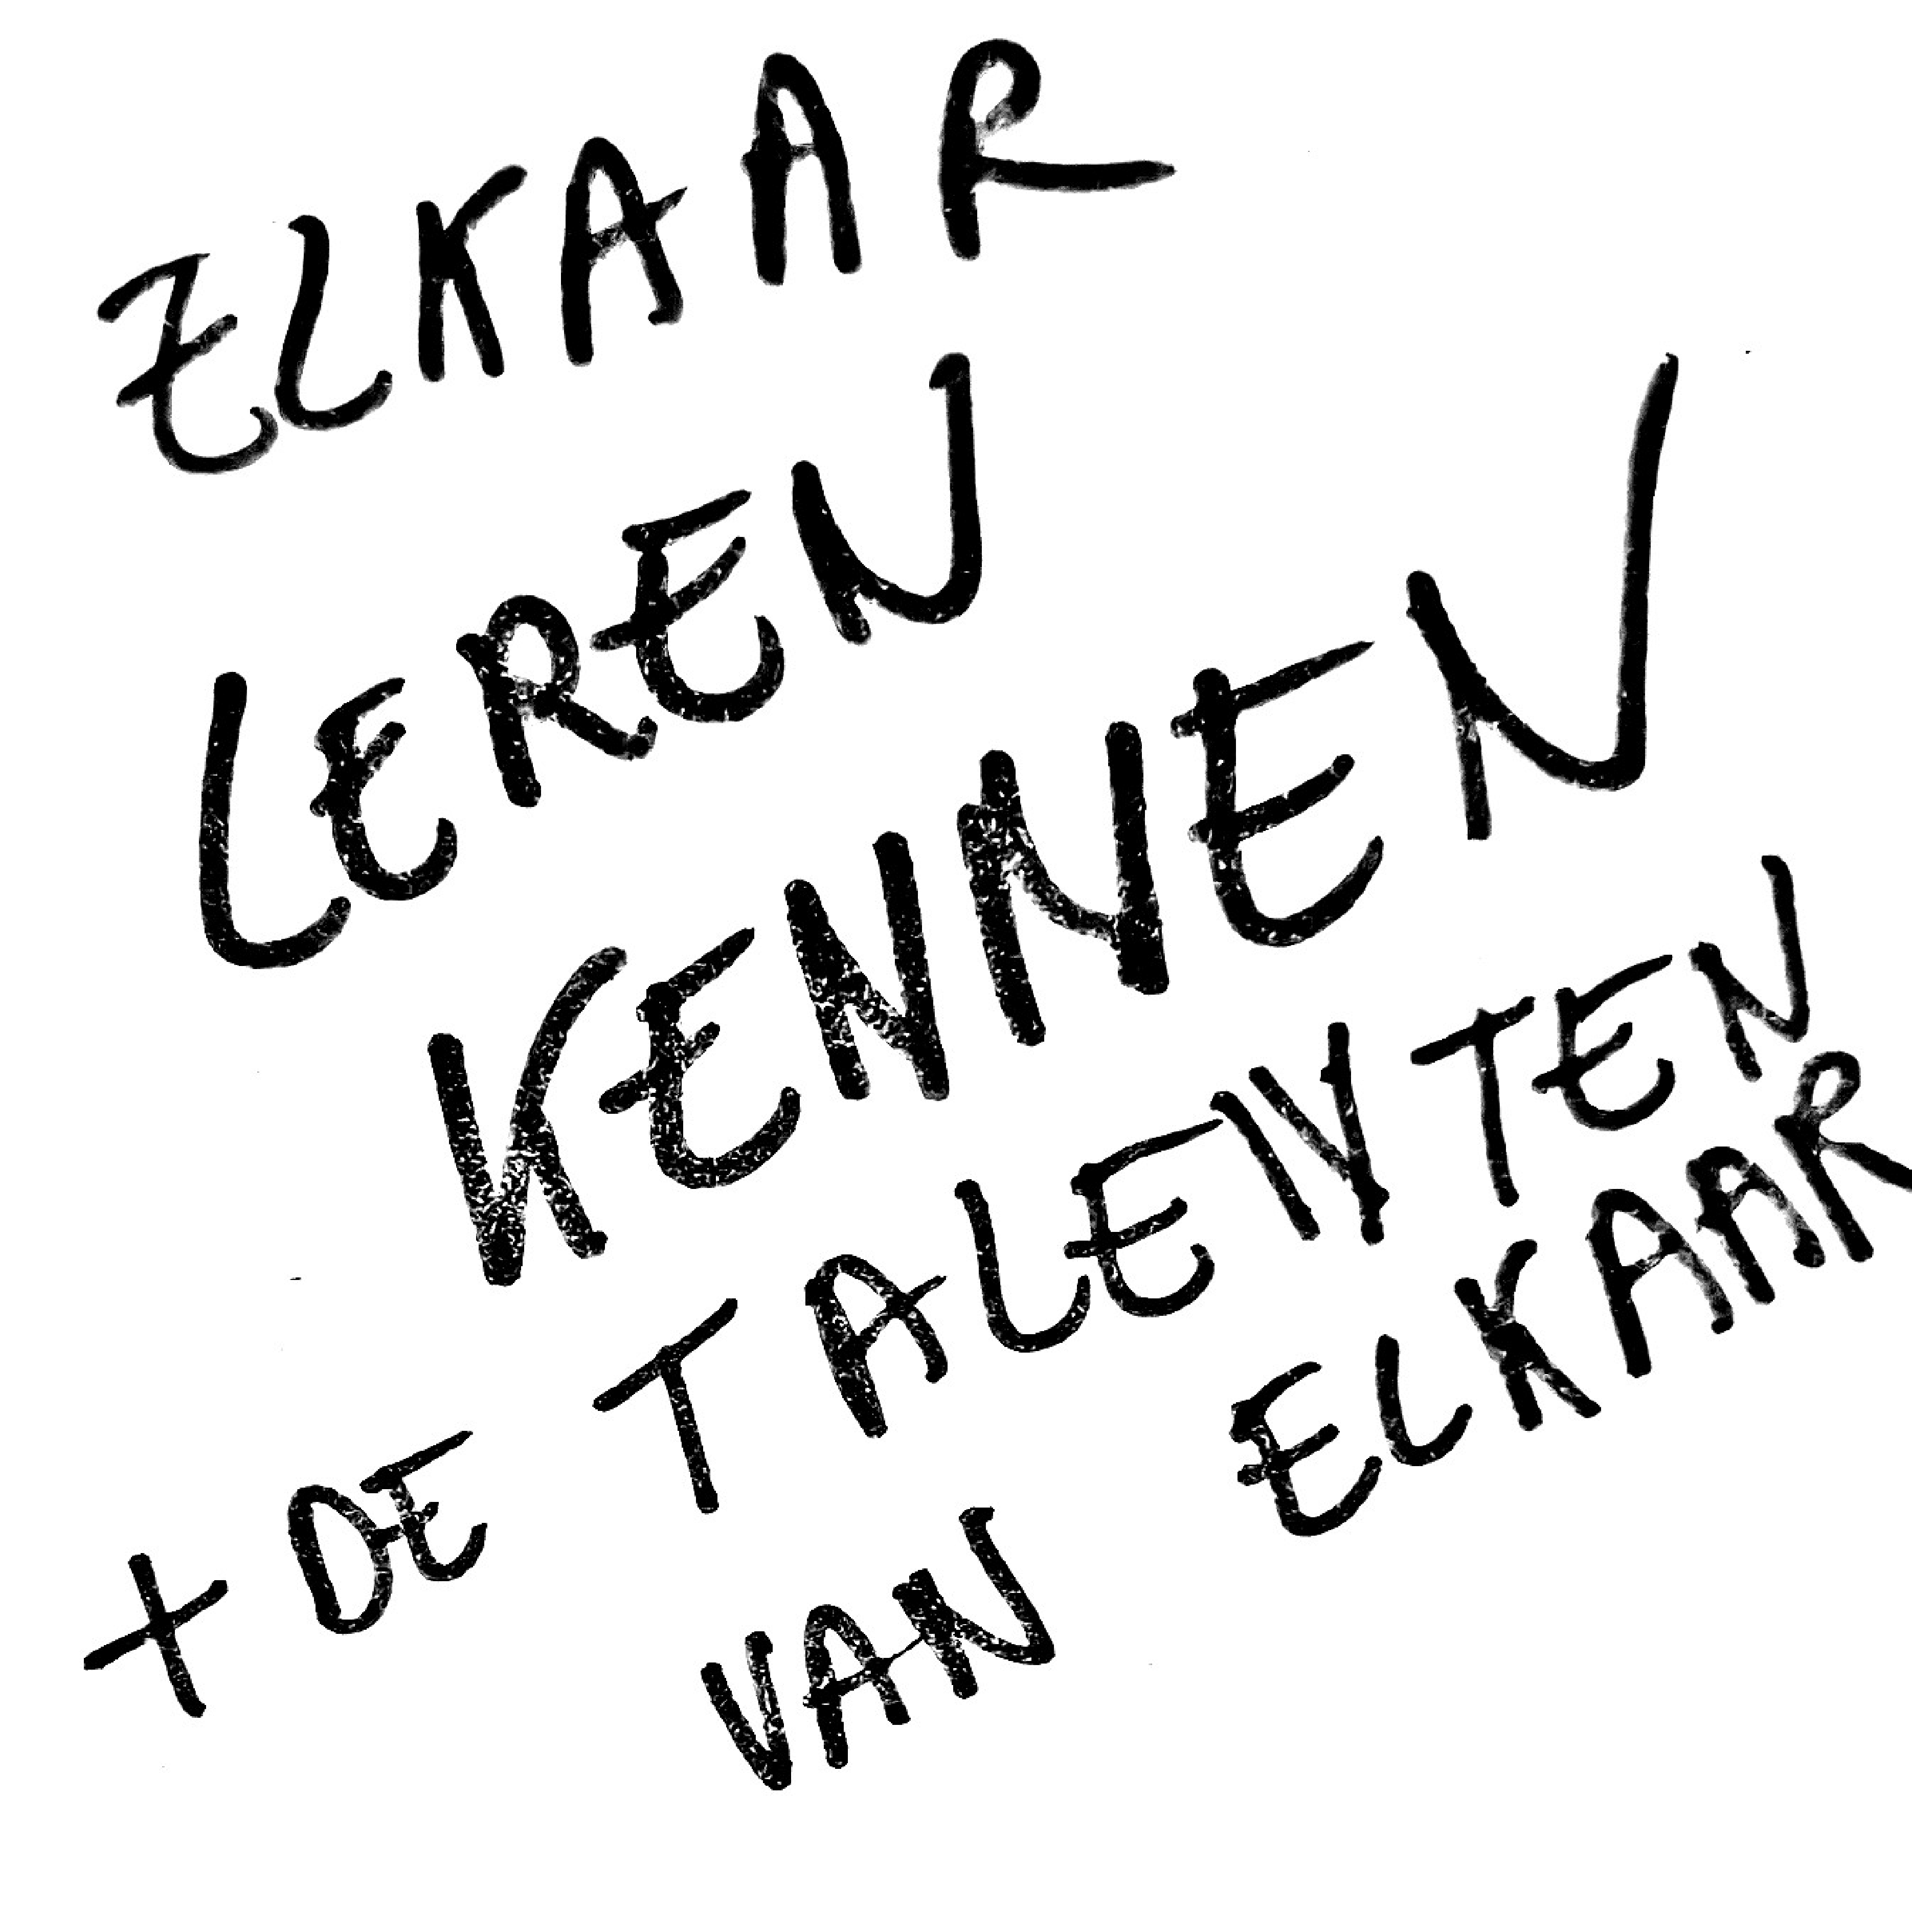 ELKAAR
LEREN
KENNEN
+ DE TALENTEN
VAN ELKAAR